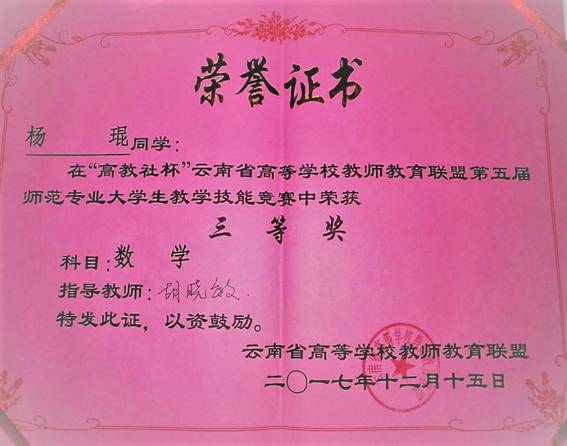 荣誉证书
杨 琨同学：
在“高教社杯”云南省高等学校教师教育联盟第五届
师范专业大学生教学技能竞赛中荣获
三 等 奖
科目：数 学
指导教师：胡晓敏
特发此证，以资鼓励。
云南省高等学校教师教育联盟
二〇一七年十二月十五日